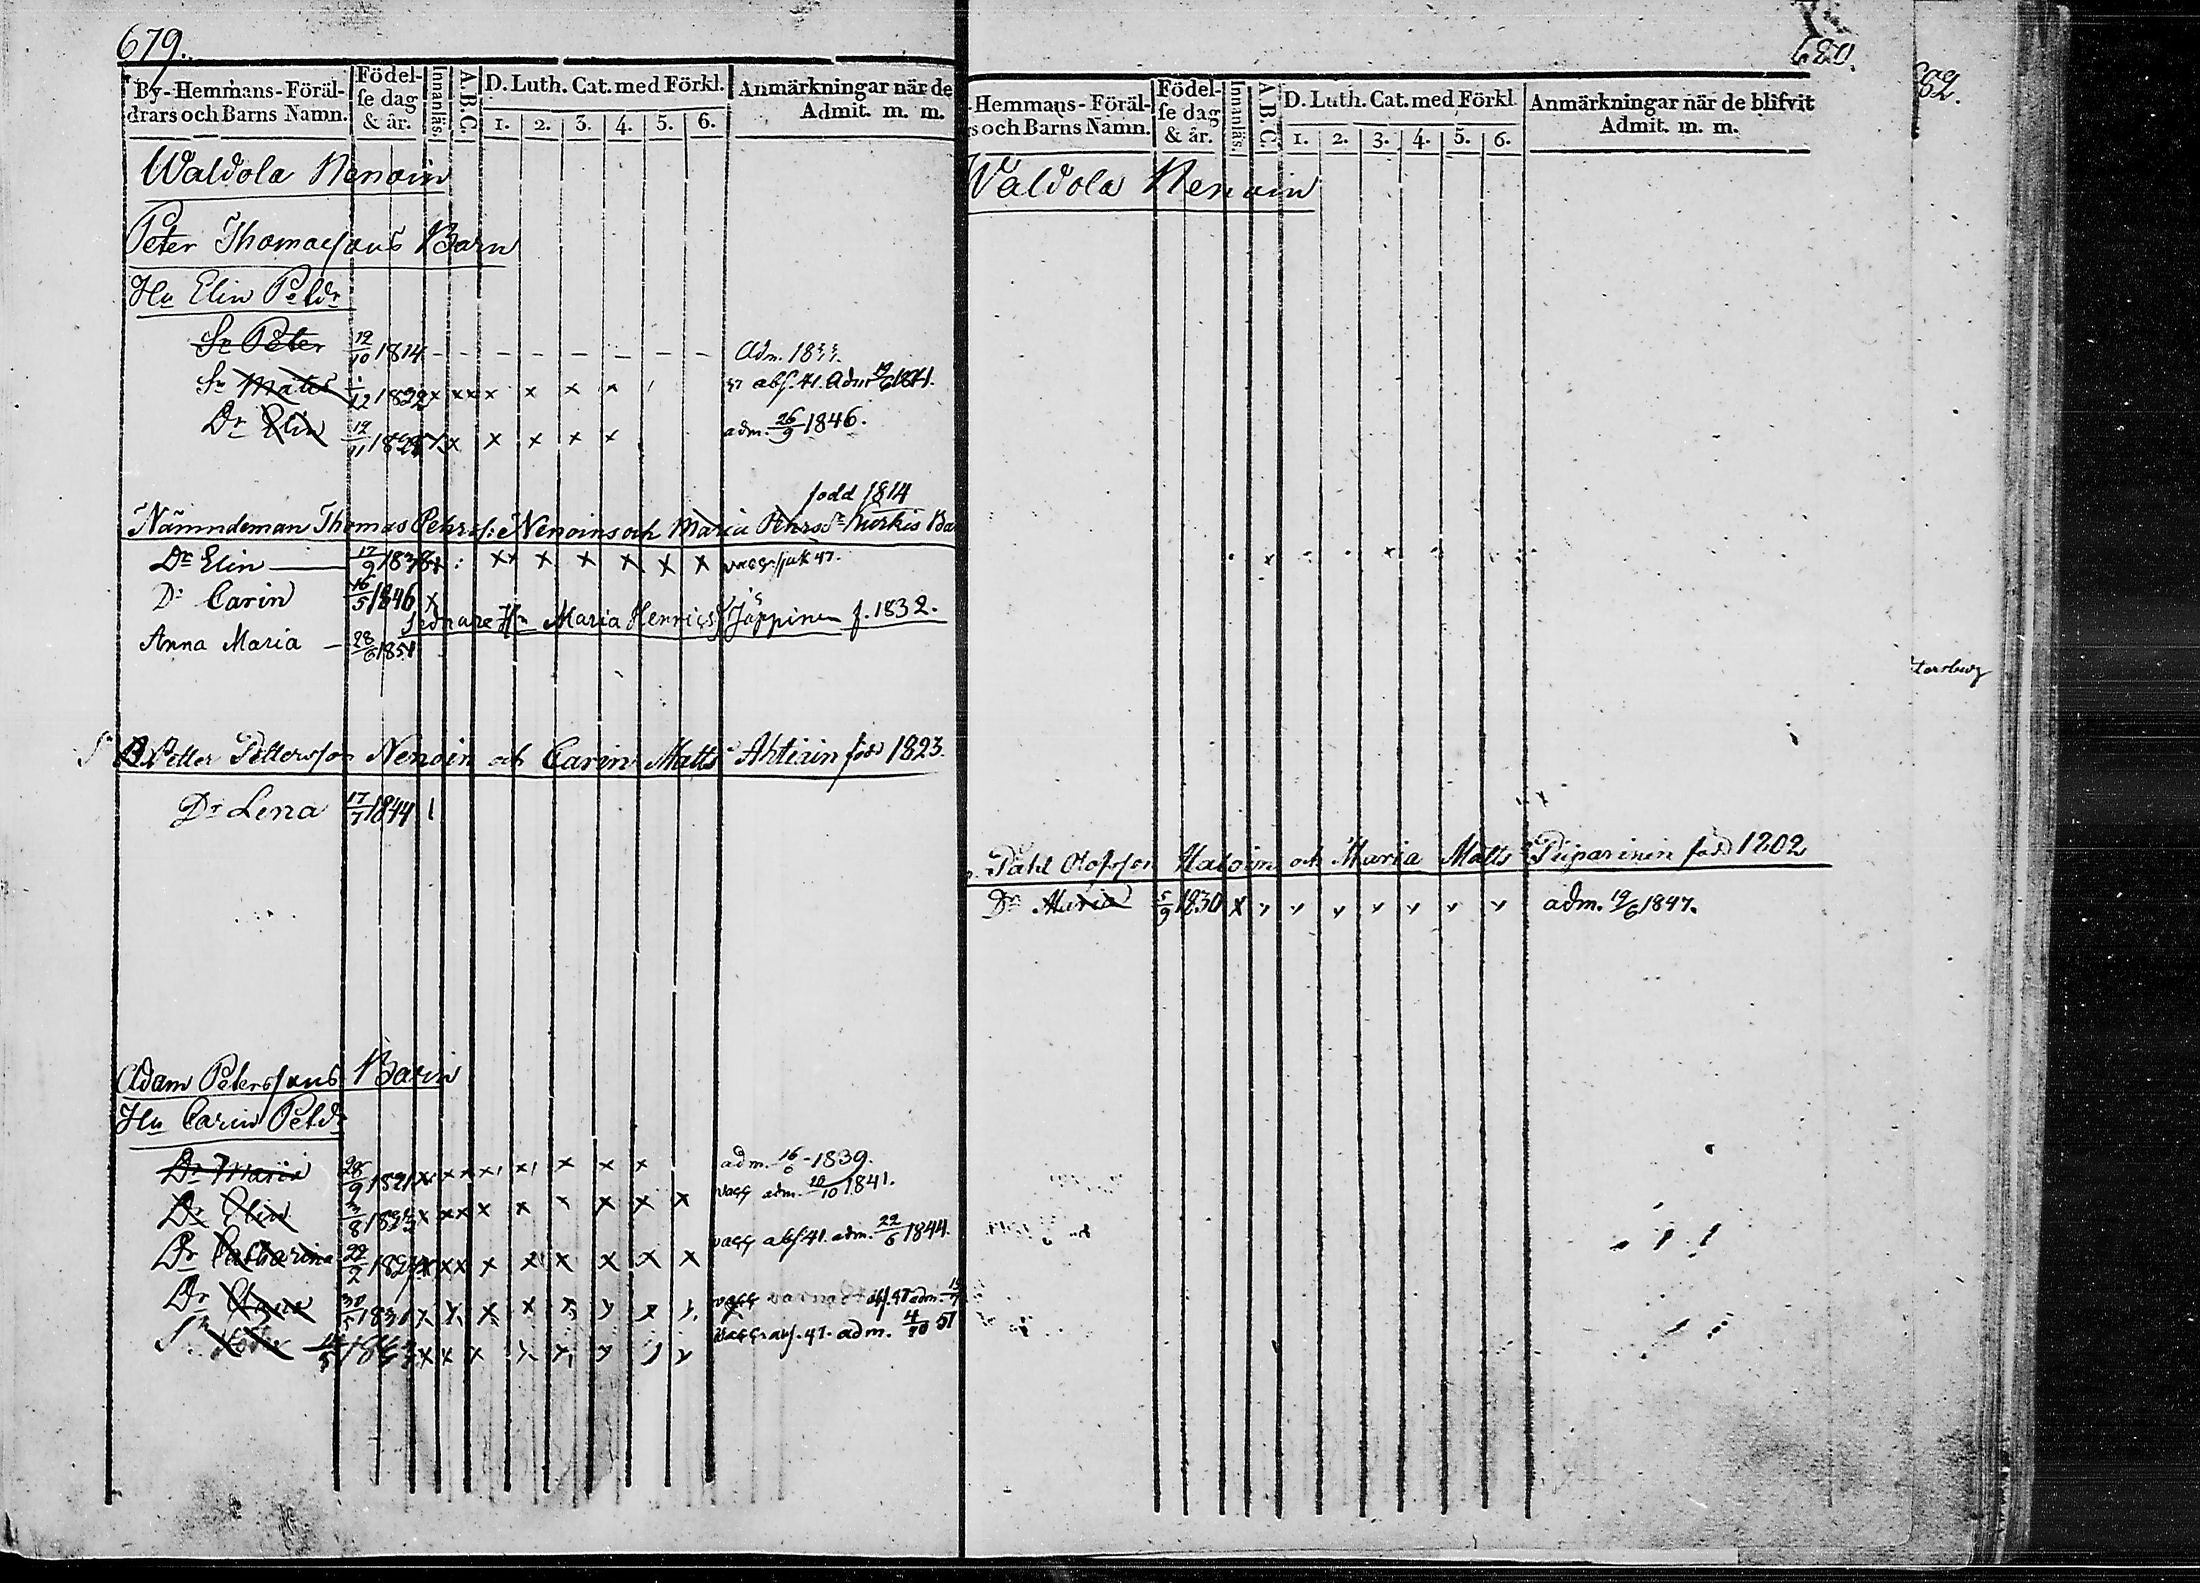 679.
By-Hemmans-Föräl-
drars och Barns Namn.
Födel-
se dag
& år.
Innanläs.
A.B.C.
D. Luth. Cat. med Förkl.
1. 2. 3. 4. 5. 6.
Anmärkningar när de
Admit. m. m.
Waldola Nenoin
Peter Thomassons Barn
Hu Elin Petdr
Sn Peter 12/10 1814 - - - - - - - - Adm. 1833.
Sn Matts 1/12 1822 x xx x x x x abs. 41. Adm 1841.
Dr Elin 12/11 x x x x x adm. 26/9 1846.
född 1814
Nämndeman Thomas Pehrss: Nenoins och Maria Pehrsdr Kurkis Ba
Dr Elin 17/9 1838 x xx x x x x x vacc. sjuk 47.
Dr Carin 16/5 1846 x
sednare Hu Maria Henricsdr Jäppinen f. 1832.
Anna Maria - 28/6 1851
Petter Pettersson Nenoin och Carin Mattsdr Ahtiain född 1823.
Dr Lena 17/7 1844 1
Adam Peterssons Barn
Hu Carin Petdr
Dr Maria 28/9 1821 x x x x x x x x adm. 16/6 - 1839.
Dr Elin 3/8 1823 x xx x x x x x x vacc adm. 10/10 1841.
Dr Catharina 22/2 x xx x x x x x x vacc abs 41. adm. 22/6 1844.
Dr Anna 30/5 1831 x x x x x x x x vacc abs. 47 adm.
Sn x x x x x vacc. abs. 47. adm. 4/10 51
680.
Hemmans-Föräl-
s och Barns Namn.
Födel-
se dag
& år.
Innanläs.
A.B.C.
D. Luth. Cat. med Förkl
1. 2. 3. 4. 5. 6.
Anmärkningar när de blifvit
Admit. m. m.
Waldola Nenoin
Påhl Olofsson Haloin och Maria Mattsdr Piiparinen född 1802
Dr Maria 5/9 1830 x x x x x x x x adm. 19/6 1847.
682.
tersburg